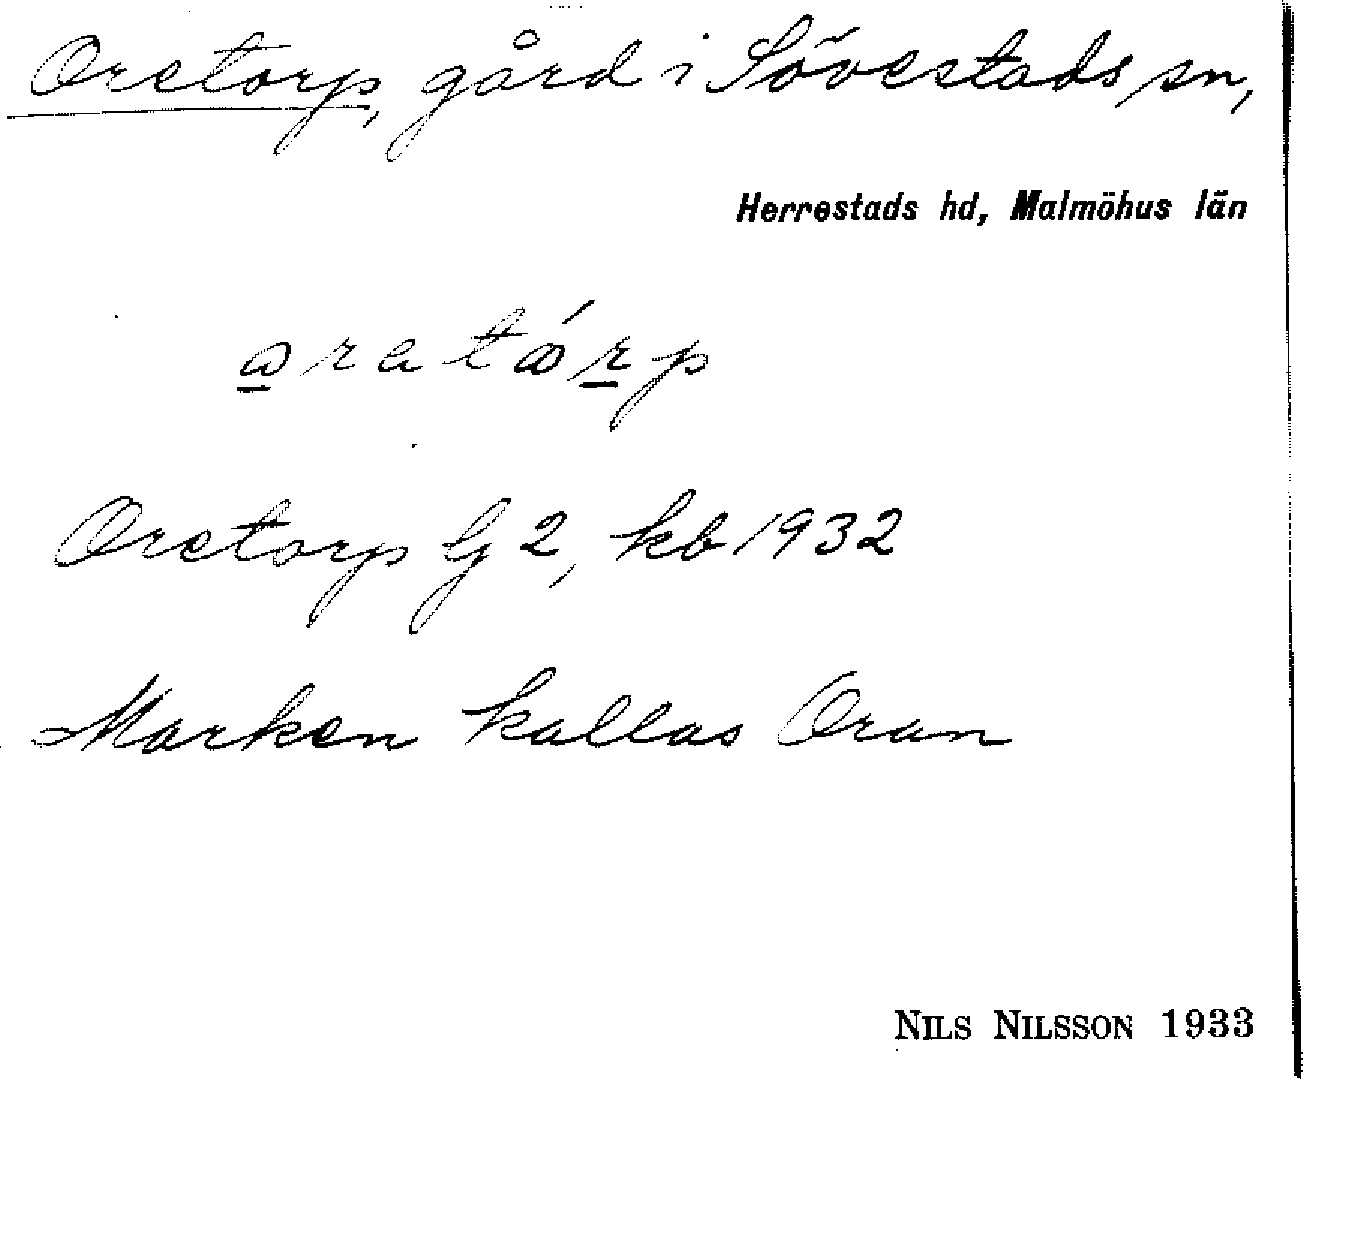 Oretorp, gård i Sövestads sn,
Herrestads hd, Malmöhus län
oratórp
Oretorp G 2, kb 1932
Marken kallas Oran
NILS NILSSON 1933